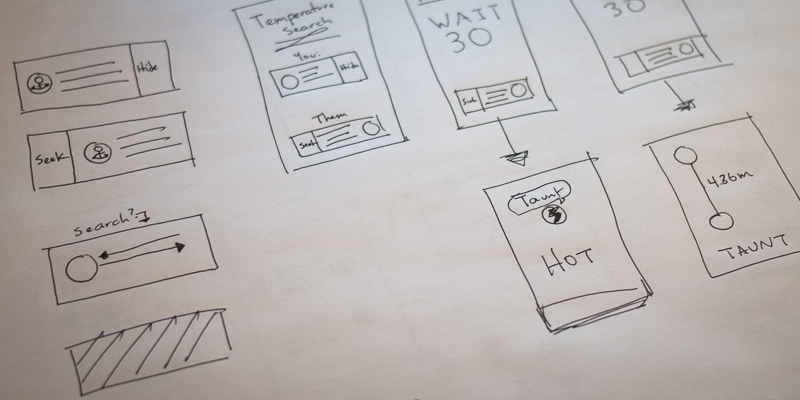 Hide
Seek
search?
Temperature
Search
You:
Hide
Them
Seek
WAIT
30
Seek
30
Taunt
HOT
4.36m
TAUNT